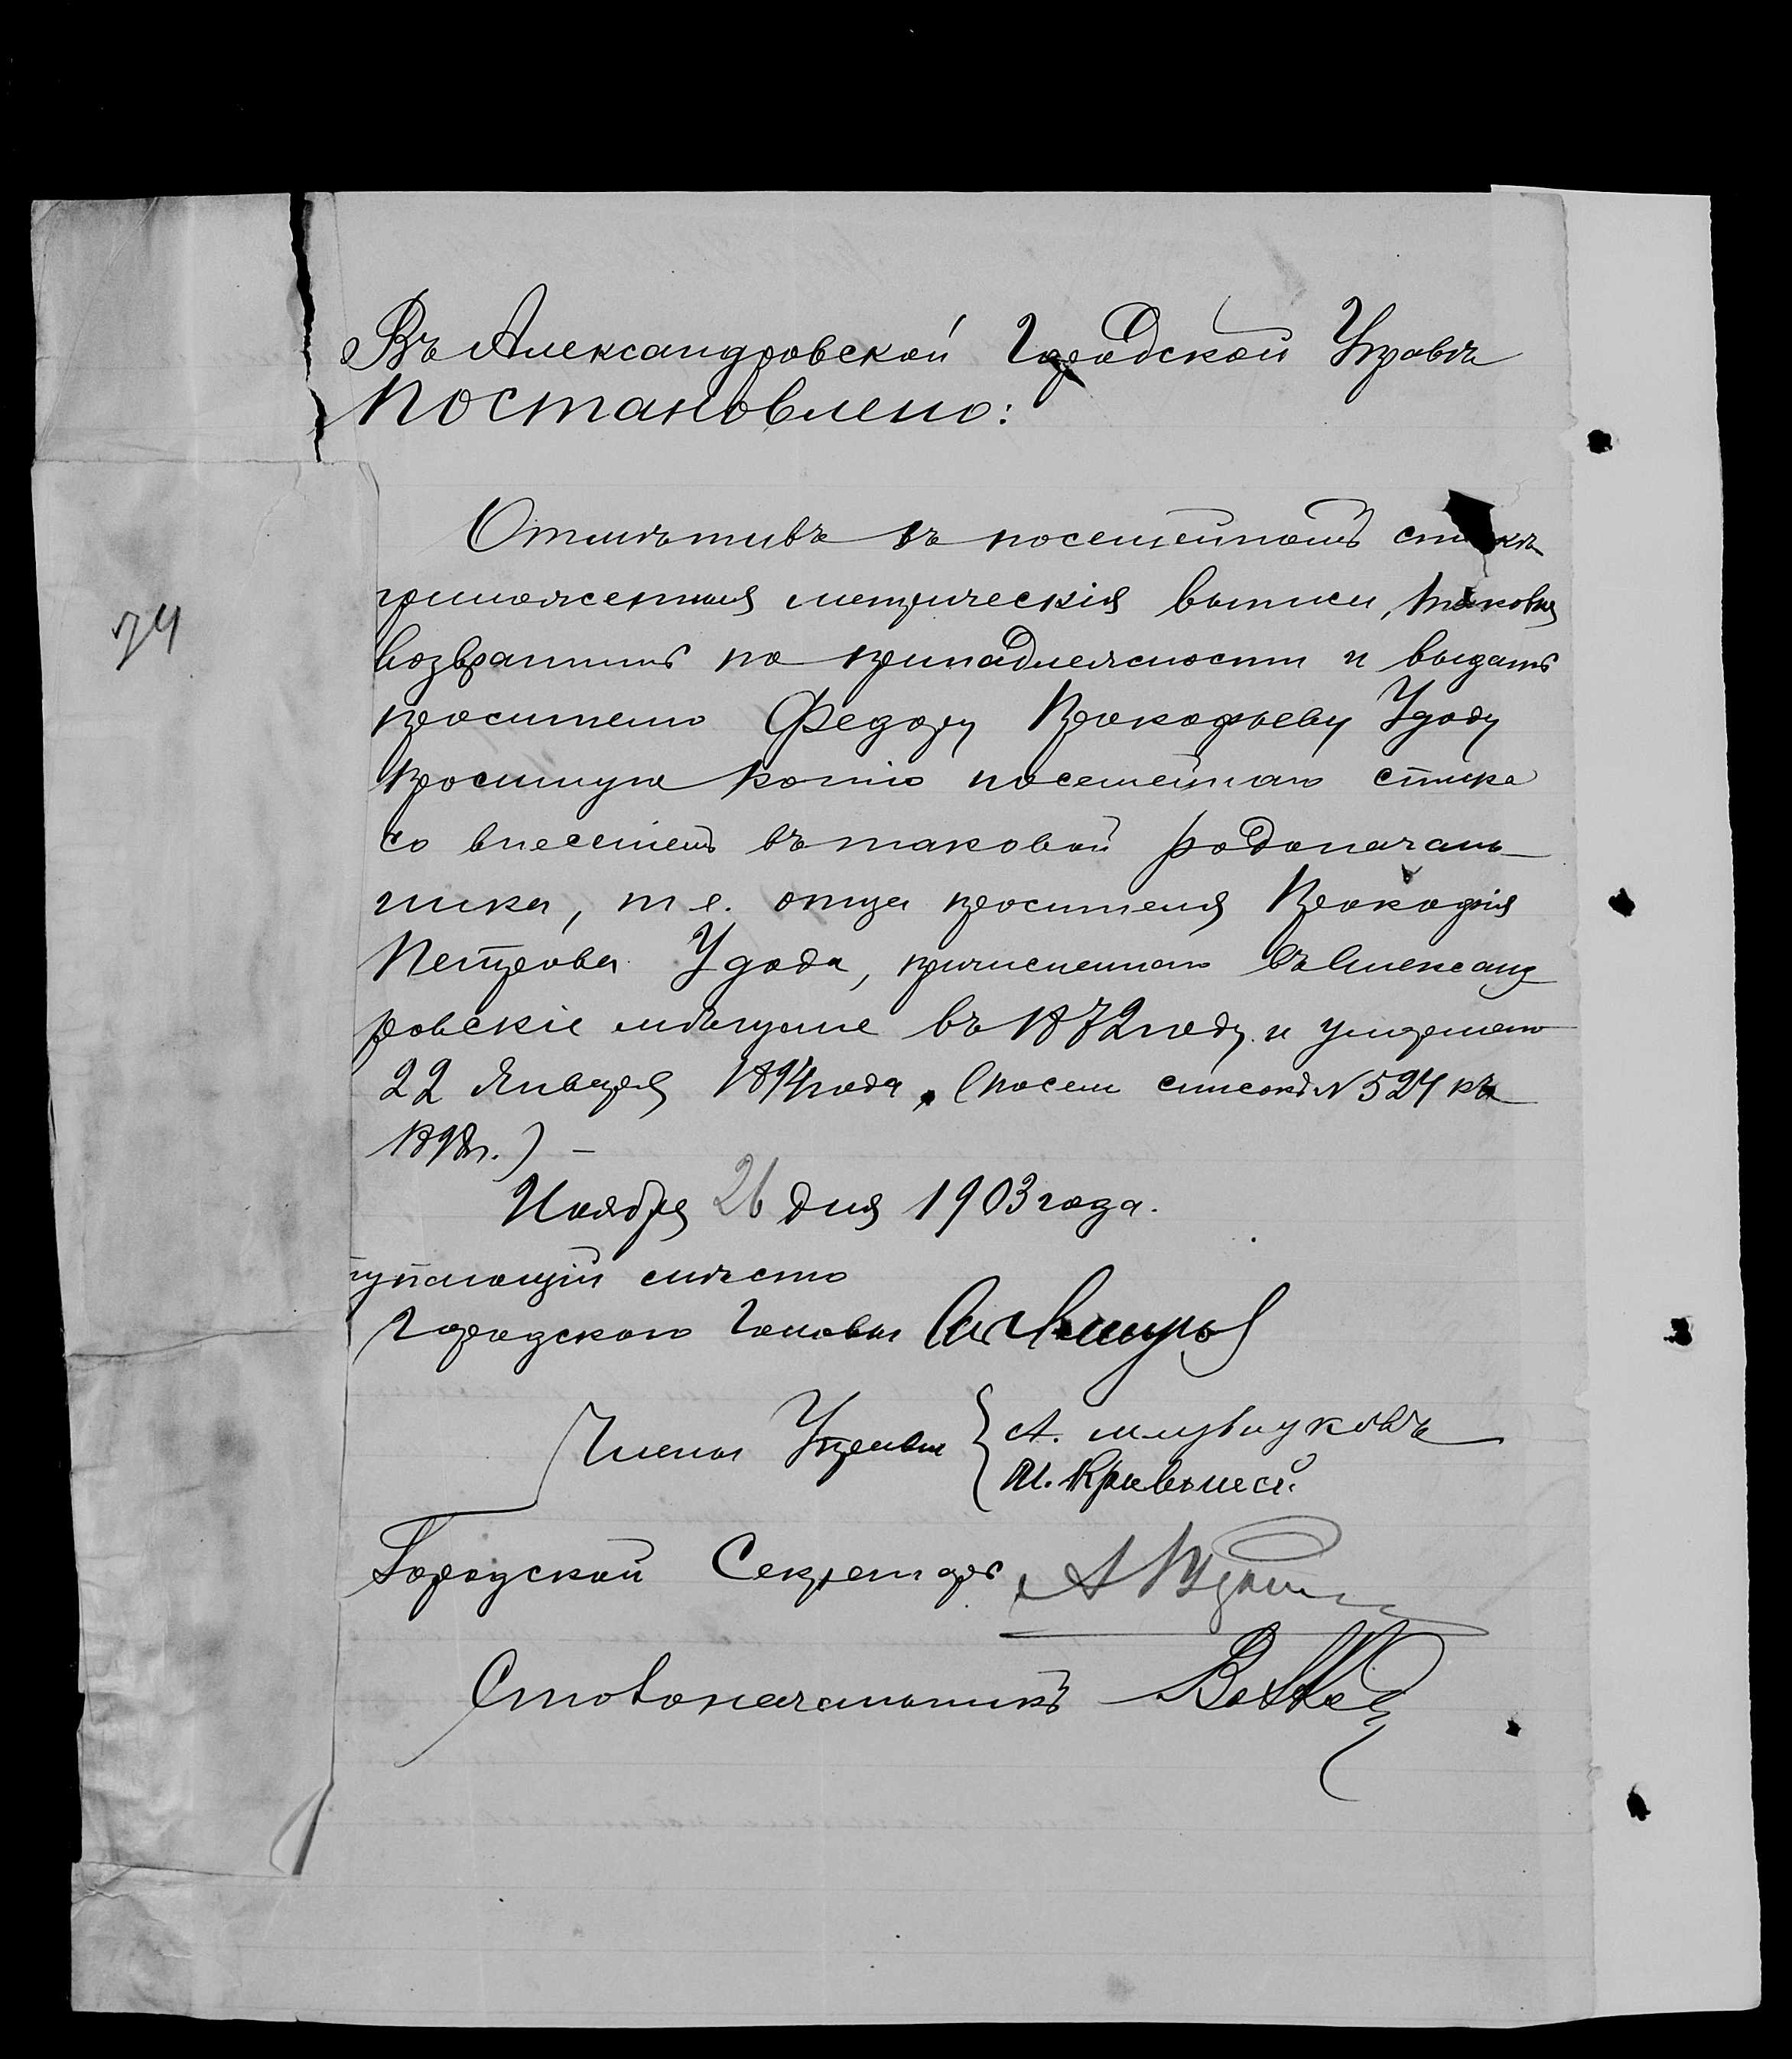 Въ Александровской Городской Управѣ
Постановлено:
Отмѣтивъ въ посемейномъ спискѣ
приложенныя метрическія выписи, таковыя
возвратить по принадлежности и выдать
просителю Федору Прокофьеву Удоду
просимую копію посемейнаго списка
со внесеніемъ въ таковой родоначаль-
ника, т. е. отца просителя Прокофія
Петрова Удода, причисленнаго въ Александ
ровскіе мѣщане въ 1872 году и умершаго
22 Января года, (посем списокъ № 524 къ
Ноября 26 дня 1903 года.
мѣсто
Городского Головы
Члены Управы
А.
И.
Городской Секретарь А
Столоначальникъ
74